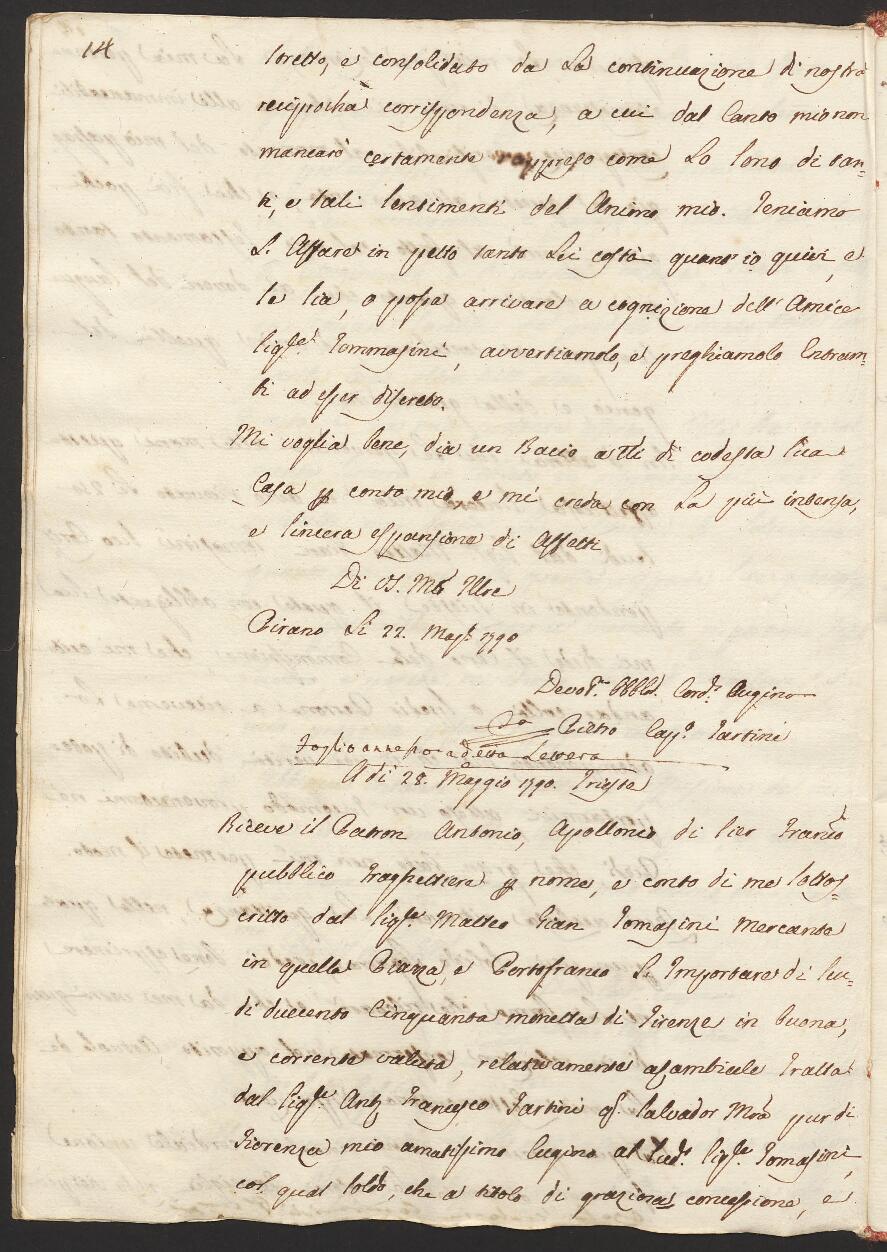 14
loretto, e consolidato da La continuazione di nostra
reciprocha corrispondenza, a cui dal Canto mio non
mancarò certamente represo come Lo sono di tan-
ti, e tali sentimenti del Animo mio. Teniamo
L'Affare in petto tanto Lei costà quant'io quivi, e
se sia, o possa arrivare a cognizione dell'Amico
Sigre. Tommasini, avvertiamolo, e preghiamolo Entram-
bi ad esser discreto.
Mi voglia bene, dia un Bacio a tti di codesta sua
Casa p conto mio, e mi creda con La più intensa,
e sincera espansione di Affetti
Di VS. Mo Illre
Pirano Li 22. Maggo 1790
Devotmo. Obblo. Cordo. Cugino
Pietro Capo. Tartini
Foglio annesso a detta Lettera
A di 28. Maggio 1790. Trieste
Riceve il Patron Antonio, Apollonio di Pier Franco
pubblico Traghettiere p nome, e conto di me sottos-
critto dal Sigre. Matteo Gian Tomasini Mercante
in quella Piazza, e Portofranco L'Importare di scu-
di ducento Cinquanta monetta di Firenze in buona,
e corrente valuta, relativamente a cambiale Tratta
dal Sigre. Anto Francesco Tartini qm. Salvador Mora pur di
Fiorenza mio amatissimo Cugino al sudo. Sigre. Tomasini,
col qual soldo, che a titolo di graziosa concessione, e